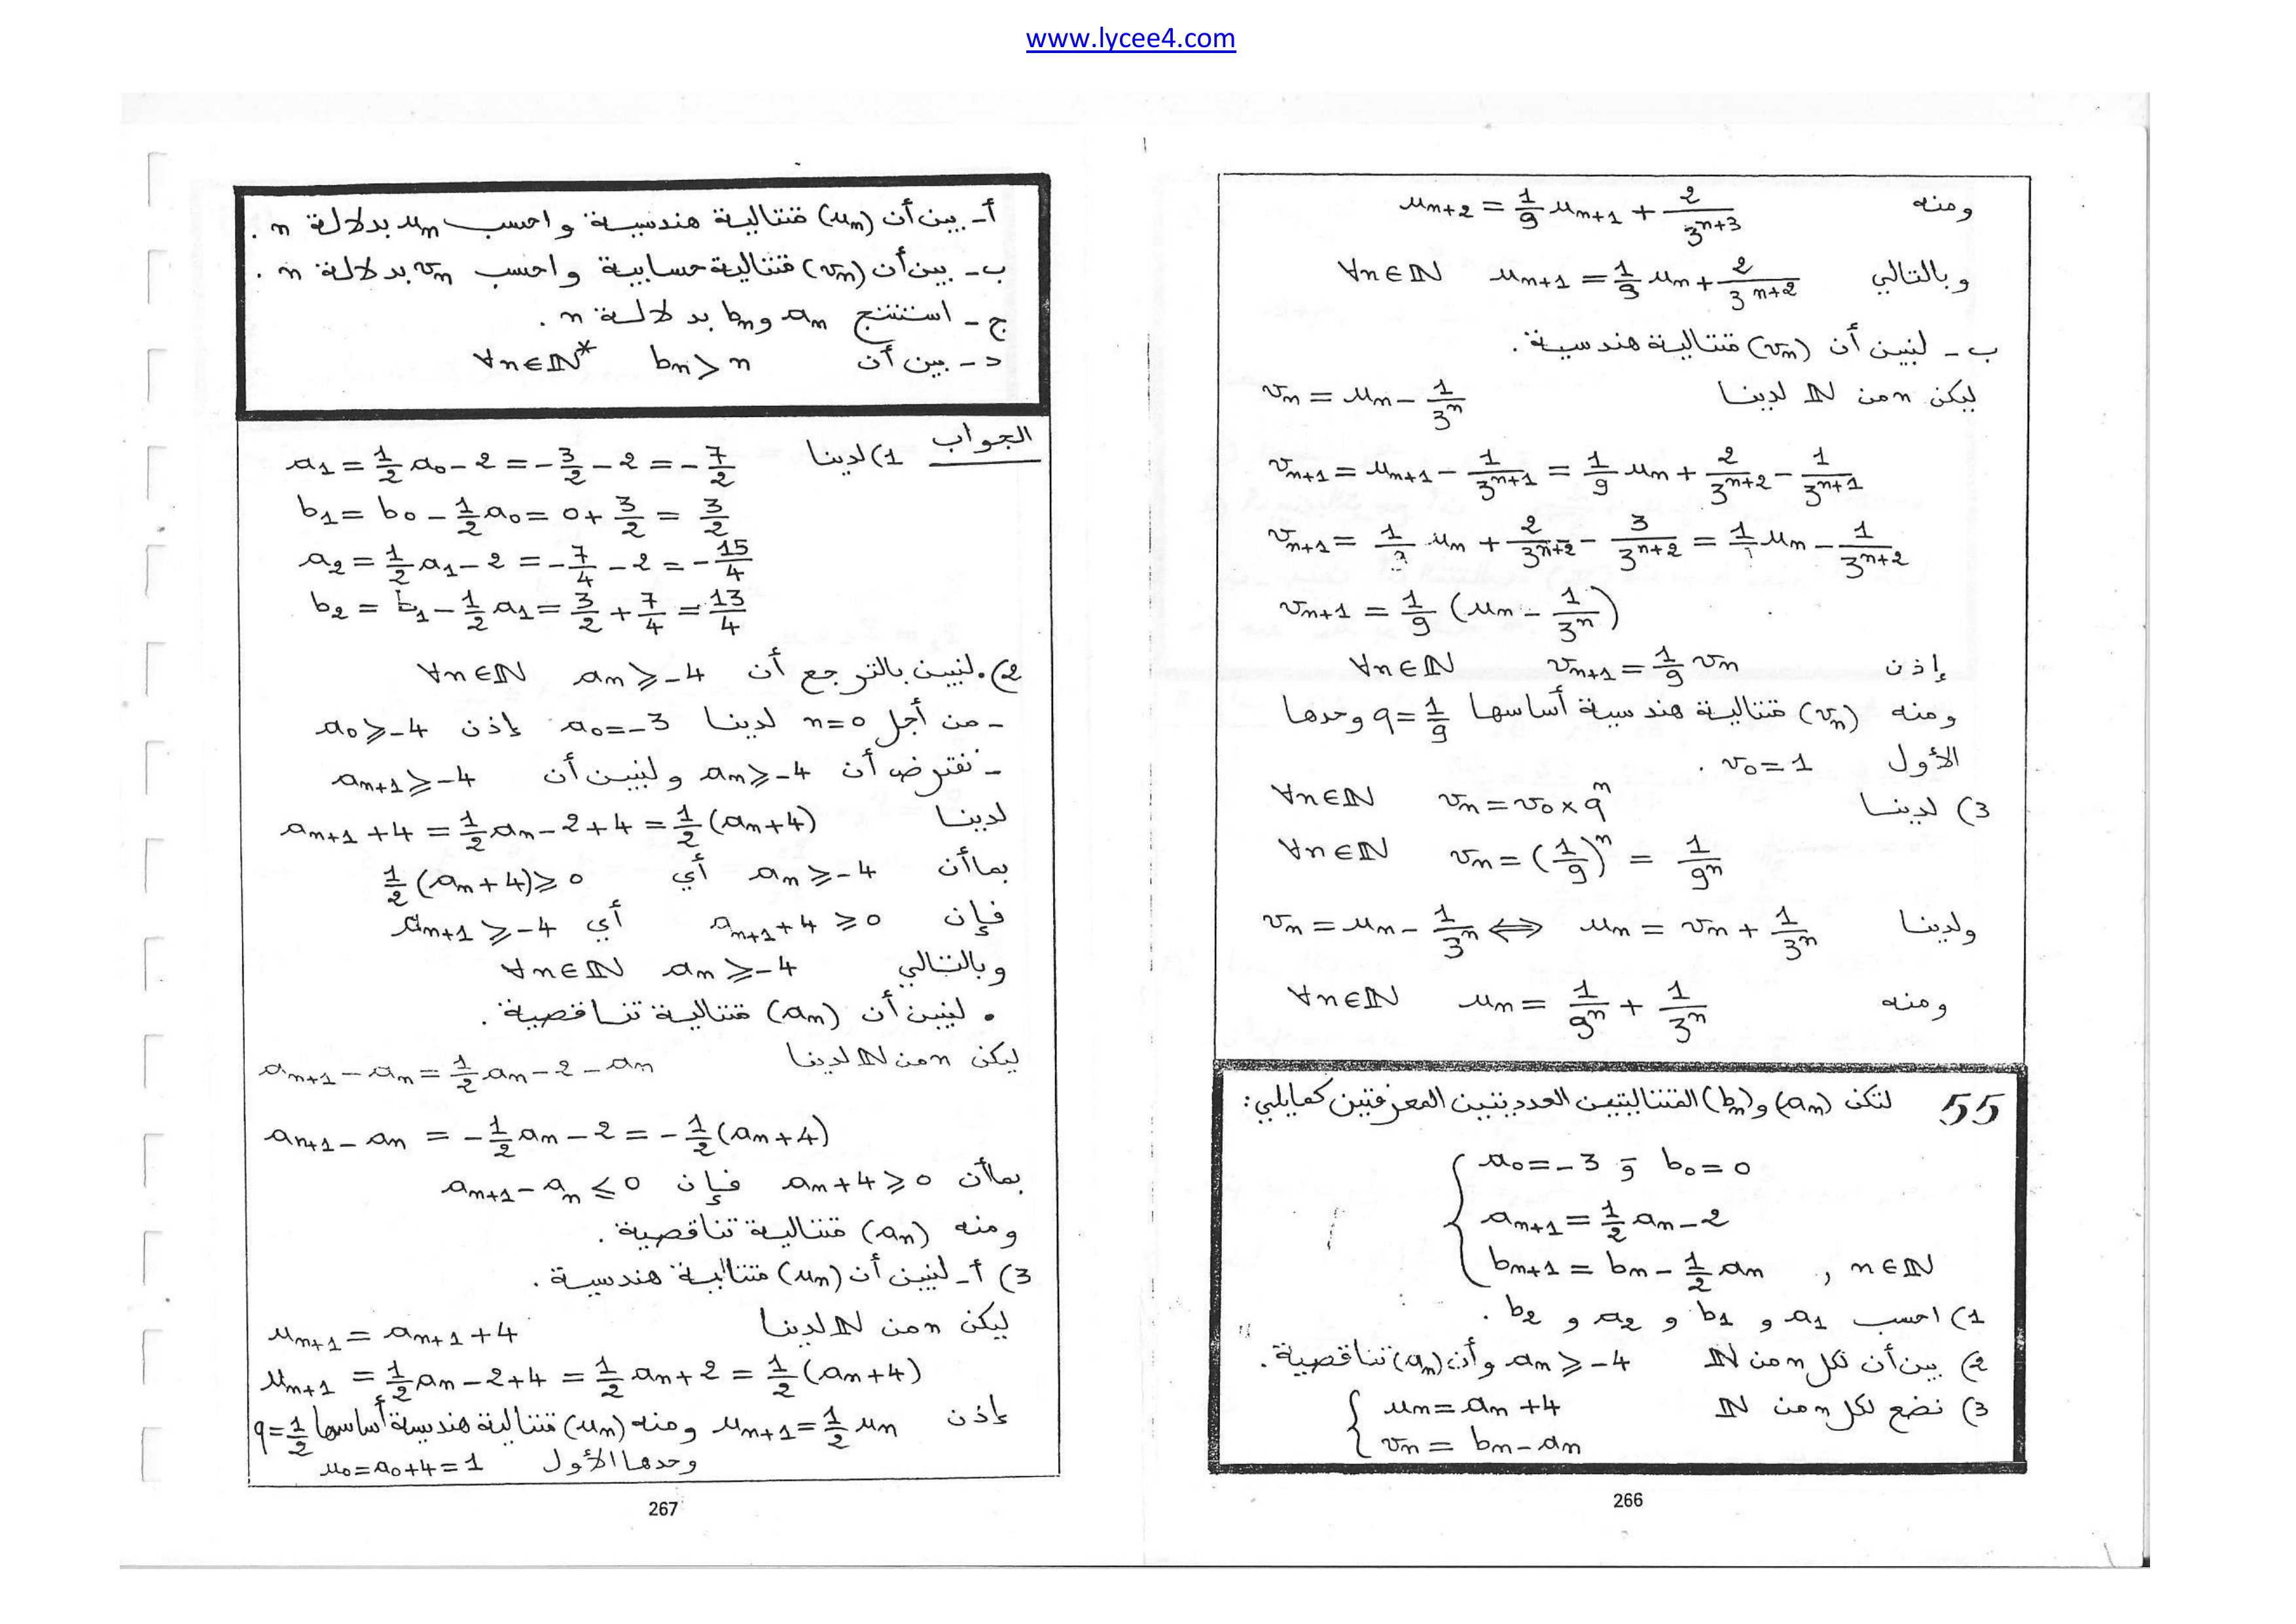 www.lycee4.com
ومنه u_{n+2} = \frac{1}{9} u_{n+1} + \frac{2}{3^{n+3}}
وبالتالي ∀n∈ℕ u_{n+1} = \frac{1}{9} u_n + \frac{2}{3^{n+2}}
ب - لنبين أن (v_n) متتالية هندسية.
ليكن n من ℕ لدينا v_n = u_n - \frac{1}{3^n}
v_{n+1} = u_{n+1} - \frac{1}{3^{n+1}} = \frac{1}{9} u_n + \frac{2}{3^{n+2}} - \frac{1}{3^{n+1}}
v_{n+1} = \frac{1}{9} u_n + \frac{2}{3^{n+2}} - \frac{3}{3^{n+2}} = \frac{1}{9} u_n - \frac{1}{3^{n+2}}
v_{n+1} = \frac{1}{9} (u_n - \frac{1}{3^n})
إذن ∀n∈ℕ v_{n+1} = \frac{1}{9} v_n
ومنه (v_n) متتالية هندسية أساسها q = \frac{1}{9} وحدها
الأول v_0 = 1 .
3) لدينا ∀n∈ℕ v_n = v_0 × q^n
∀n∈ℕ v_n = (\frac{1}{9})^n = \frac{1}{9^n}
ولدينا v_n = u_n - \frac{1}{3^n} ⟺ u_n = v_n + \frac{1}{3^n}
ومنه ∀n∈ℕ u_n = \frac{1}{9^n} + \frac{1}{3^n}
55 لتكن (a_n) و (b_n) المتتاليتين العدديتين المعرفتين كمايلي:
a_0 = -3 و b_0 = 0
a_{n+1} = \frac{1}{2} a_n - 2
b_{n+1} = b_n - \frac{1}{2} a_n , n∈ℕ
1) احسب a_1 و b_1 و a_2 و b_2 .
2) بين أن لكل n من ℕ a_n ≥ -4 وأن (a_n) تناقصية.
3) نضع لكل n من ℕ u_n = a_n + 4
v_n = b_n - a_n
266
أ - بين أن (u_n) متتالية هندسية واحسب u_n بدلالة n .
ب - بين أن (v_n) متتالية حسابية واحسب v_n بدلالة n .
ج - استنتج a_n و b_n بدلالة n .
د - بين أن b_n > n ∀n∈ℕ*
الجواب 1) لدينا a_1 = \frac{1}{2} a_0 - 2 = -\frac{3}{2} - 2 = -\frac{7}{2}
b_1 = b_0 - \frac{1}{2} a_0 = 0 + \frac{3}{2} = \frac{3}{2}
a_2 = \frac{1}{2} a_1 - 2 = -\frac{7}{4} - 2 = -\frac{15}{4}
b_2 = b_1 - \frac{1}{2} a_1 = \frac{3}{2} + \frac{7}{4} = \frac{13}{4}
2) • لنبين بالترجع أن ∀n∈ℕ a_n ≥ -4
- من أجل n = 0 لدينا a_0 = -3 إذن a_0 ≥ -4
- نفترض أن a_n ≥ -4 ولنبين أن a_{n+1} ≥ -4
لدينا a_{n+1} + 4 = \frac{1}{2} a_n - 2 + 4 = \frac{1}{2} (a_n + 4)
بما أن a_n ≥ -4 أي \frac{1}{2} (a_n + 4) ≥ 0
فإن a_{n+1} + 4 ≥ 0 أي a_{n+1} ≥ -4
وبالتالي ∀n∈ℕ a_n ≥ -4
• لنبين أن (a_n) متتالية تناقصية .
ليكن n من ℕ لدينا a_{n+1} - a_n = \frac{1}{2} a_n - 2 - a_n
a_{n+1} - a_n = -\frac{1}{2} a_n - 2 = -\frac{1}{2} (a_n + 4)
بما أن a_n + 4 ≥ 0 فإن a_{n+1} - a_n ≤ 0
ومنه (a_n) متتالية تناقصية .
3) أ - لنبين أن (u_n) متتالية هندسية .
ليكن n من ℕ لدينا u_{n+1} = a_{n+1} + 4
u_{n+1} = \frac{1}{2} a_n - 2 + 4 = \frac{1}{2} a_n + 2 = \frac{1}{2} (a_n + 4)
إذن u_{n+1} = \frac{1}{2} u_n ومنه (u_n) متتالية هندسية أساسها q = \frac{1}{2}
وحدها الأول u_0 = a_0 + 4 = 1
267